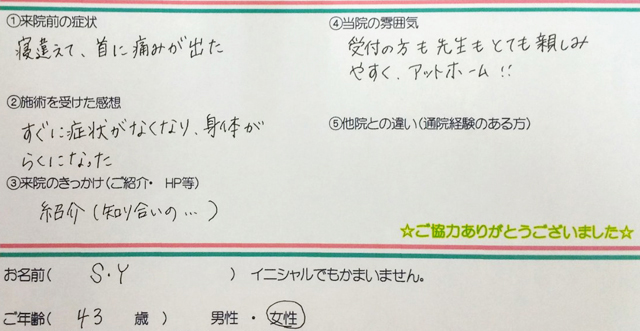 ①来院前の症状
寝違えて、首に痛みが出た
②施術を受けた感想
すぐに症状がなくなり、身体が
らくになった
③来院のきっかけ(ご紹介・ HP等)
紹介(知り合いの…)
④当院の雰囲気
受付の方も先生もとても親しみ
やすく、アットホーム!!
⑤他院との違い(通院経験のある方)
☆ご協力ありがとうございました☆
お名前( S・Y ) イニシャルでもかまいません。
ご年齢( 43 歳 ) 男性 ・ 女性